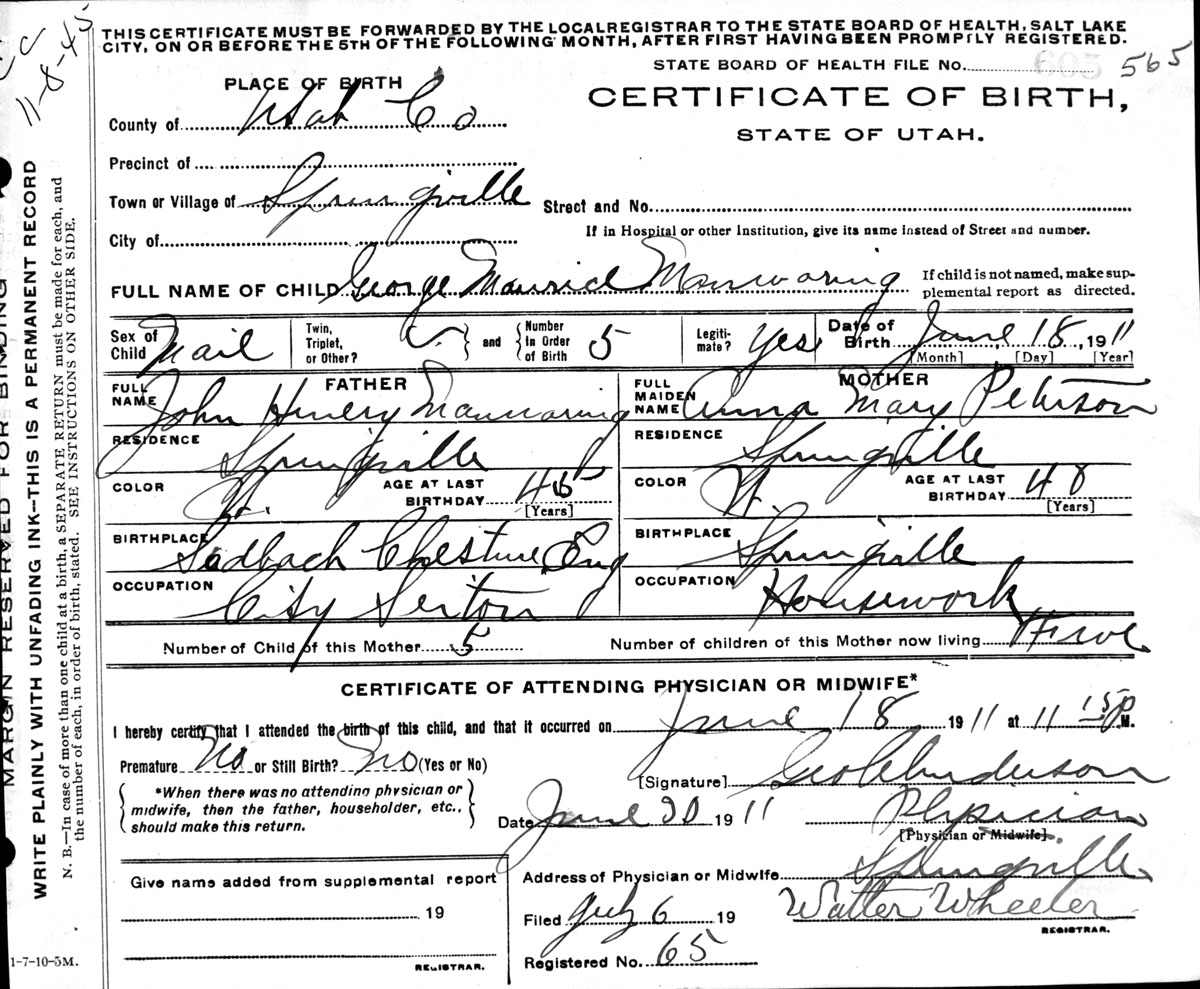 11-8-45
THIS CERTIFICATE MUST BE FORWARDED BY THE LOCAL REGISTRAR TO THE STATE BOARD OF HEALTH, SALT LAKE
CITY, ON OR BEFORE THE 5TH OF THE FOLLOWING MONTH, AFTER FIRST HAVING BEEN PROMPTLY REGISTERED.
STATE BOARD OF HEALTH FILE No. 605 565
PLACE OF BIRTH
CERTIFICATE OF BIRTH,
STATE OF UTAH.
County of Utah Co
Precinct of
Town or Village of Springville
Street and No.
City of
If in Hospital or other Institution, give its name instead of Street and number.
FULL NAME OF CHILD George Mauricl Manwaring
If child is not named, make sup-
plemental report as directed.
Sex of Child Mail
Twin, Triplet, or Other?
and
Number In Order of Birth 5
Legiti-mate? Yes
Date of Birth June 18, 1911
[Month] [Day] [Year]
FATHER
MOTHER
FULL NAME John Henery Manwaring
FULL MAIDEN NAME Anna Mary Peterson
RESIDENCE Springville
RESIDENCE Springville
COLOR W.
AGE AT LAST BIRTHDAY 45
[Years]
COLOR W.
AGE AT LAST BIRTHDAY 48
[Years]
BIRTHPLACE Sodbach Chesture Eng
BIRTHPLACE Springville
OCCUPATION City Sexton
OCCUPATION Housework
Number of Child of this Mother 5
Number of children of this Mother now living
CERTIFICATE OF ATTENDING PHYSICIAN OR MIDWIFE*
I hereby certify that I attended the birth of this child, and that it occurred on June 18 1911 at 11 15 P M.
Premature No or Still Birth? No (Yes or No)
*When there was no attending physician or
midwife, then the father, householder, etc.,
should make this return.
[Signature] Geo Anderson
Date June 20 1911
Physician
[Physician or Midwife]
Give name added from supplemental report
19
REGISTRAR.
Address of Physician or Midwife Springville
Filed July 6 19
Walter Wheeler
REGISTRAR.
Registered No. 65
1-7-10-5M.
MARGIN RESERVED FOR BINDING
WRITE PLAINLY WITH UNFADING INK—THIS IS A PERMANENT RECORD
N. B.—In case of more than one child at a birth, a SEPARATE RETURN must be made for each, and
the number of each, in order of birth, stated. SEE INSTRUCTIONS ON OTHER SIDE.